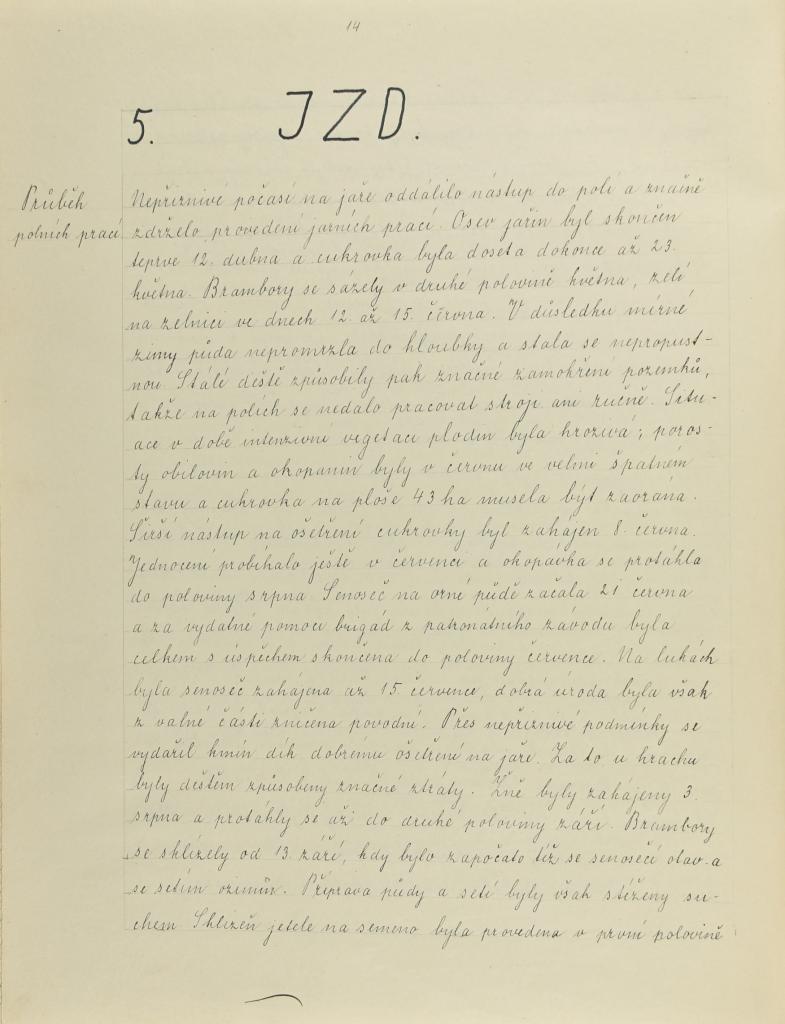 14
5. JZD.
Průběh
polních prací
Nepříznivé počasí na jaře oddálilo nástup do polí a značně
zdrželo provedení jarních prací. Osev jařin byl skončen
teprve 12. dubna a cukrovka byla doseta dokonce až 23.
května. Brambory se sázely v druhé polovině května, zelí
na zelnici ve dnech 12. až 15. června. V důsledku mírné
zimy půda nepromrzla do hloubky a stala se nepropust-
nou. Stálé deště způsobily pak značné zamokření pozemků,
takže na polích se nedalo pracovat stroji ani ručně. Situ-
ace v době intenzivní vegetaci plodin byla hrozivá; poros-
ty obilovin a okopanin byly v červnu ve velmi špatném
stavu a cukrovka na ploše 43 ha musela být zaorána.
Širší nástup na ošetření cukrovky byl zahájen 8. června.
Jednocení probíhalo ještě v červenci a okopávka se protáhla
do poloviny srpna. Senoseč na orné půdě začala 21 června
a za vydatné pomoci brigád z patronátního závodu byla
celkem s úspěchem skončena do poloviny července. Na lukách
byla senoseč zahájena až 15. července, dobrá úroda byla však
z valné části zničena povodní. Přes nepříznivé podmínky se
vydařil kmín dík dobrému ošetření na jaře. Za to u hrachu
byly deštěm způsobeny značné ztráty. Žně byly zahájeny 3.
srpna a protáhly se až do druhé poloviny září. Brambory
se sklízely od 13. září, kdy bylo započato též se senosečí otav a
se setím ozimin. Příprava půdy a setí byly však stíženy su-
chem Sklizeň jetele na semeno byla provedena v první polovině